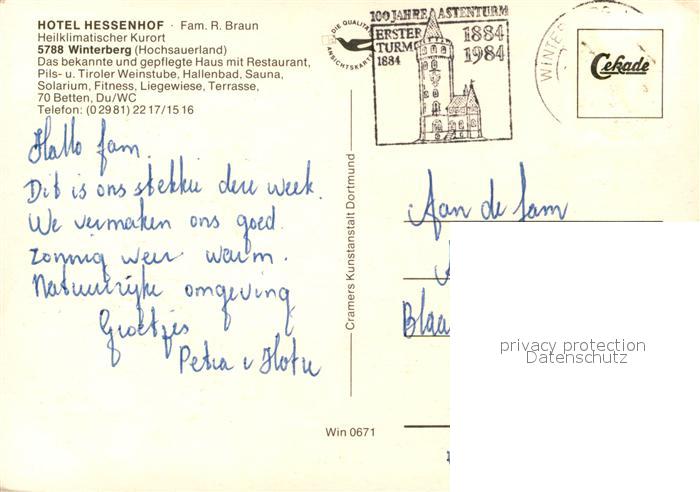 HOTEL HESSENHOF · Fam. R. Braun
Heilklimatischer Kurort
5788 Winterberg (Hochsauerland)
Das bekannte und gepflegte Haus mit Restaurant,
Pils- u. Tiroler Weinstube, Hallenbad, Sauna,
Solarium, Fitness, Liegewiese, Terrasse,
70 Betten, Du/WC
Telefon: (02981) 2217/1516
Hallo fam.
Dit is ons stekkie deze week.
We vermaken ons goed.
zonnig weer warm.
Natuurrijke omgeving
Groetjes
Petra
DIE QUALITÄTS
ANSICHTSKARTE
Cramers Kunstanstalt Dortmund
Win 0671
100 JAHRE ASTENTURM
ERSTER 1884
TURM 1984
1884
WINTERBERG
Cekade
Aan de fam
Blaa
privacy protection
Datenschutz